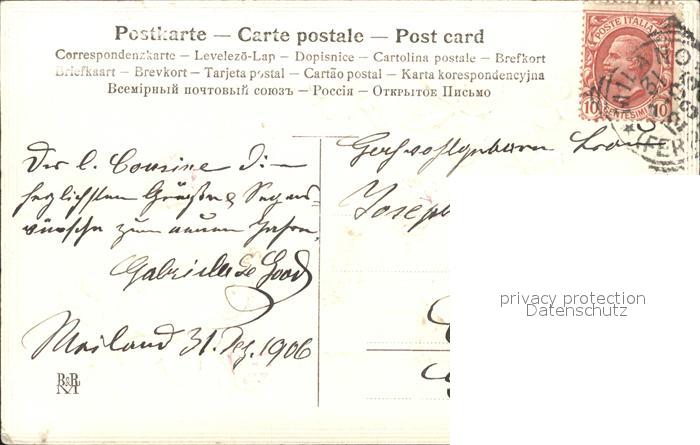 Postkarte — Carte postale — Post card
Correspondenzkarte — Levelező-Lap — Dopisnice — Cartolina postale — Brefkort
Briefkaart — Brevkort — Tarjeta postal — Cartão postal — Karta korespondencyjna
Всемірный почтовый союзъ — Россія — Открытое Письмо
POSTE ITALIANE
10 CENTESIMI 10
FER
Der l. Cousine die
herzlichsten Grüsse & Segens-
wünsche zum neuen Jahre,
Gabriele
Mailand 31. Dez. 1906
Hochwohlgeboren
Joseph
privacy protection
Datenschutz